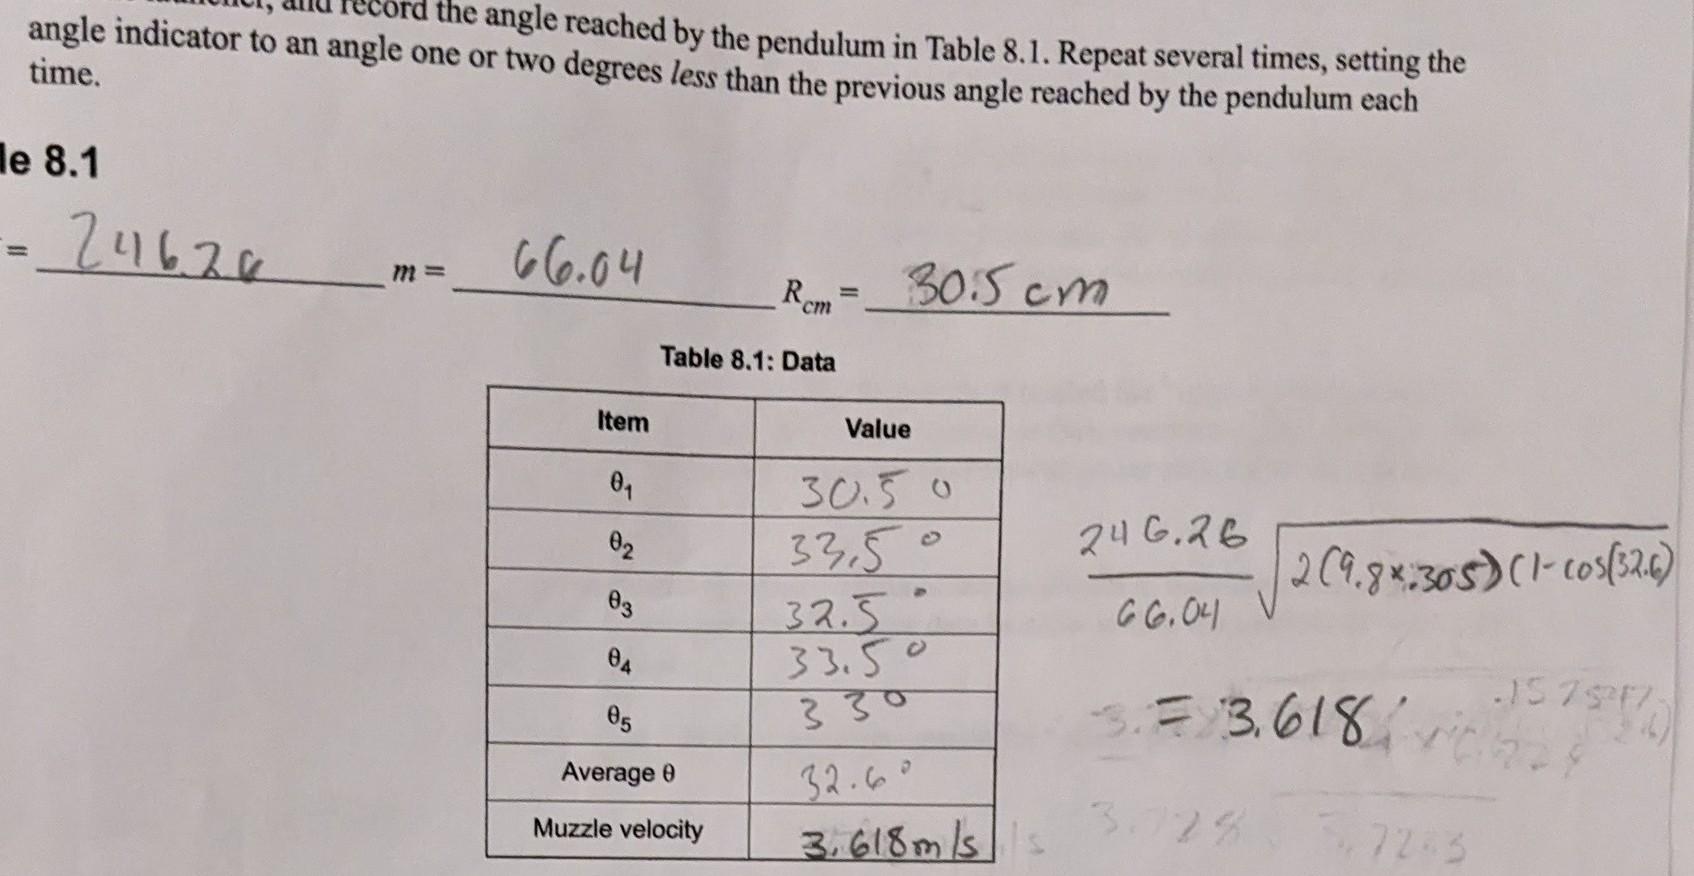 and record the angle reached by the pendulum in Table 8.1. Repeat several times, setting the
angle indicator to an angle one or two degrees less than the previous angle reached by the pendulum each
time.
le 8.1
= 246.26 m = 66.04 Rcm = 30.5 cm
Table 8.1: Data
Item Value
θ1 30.5°
θ2 33.5°
θ3 32.5°
θ4 33.5°
θ5 33°
Average θ 32.6°
Muzzle velocity 3.618 m/s
246.26
66.04
√2(9.8×.305)(1-cos(32.6)
= 3.618